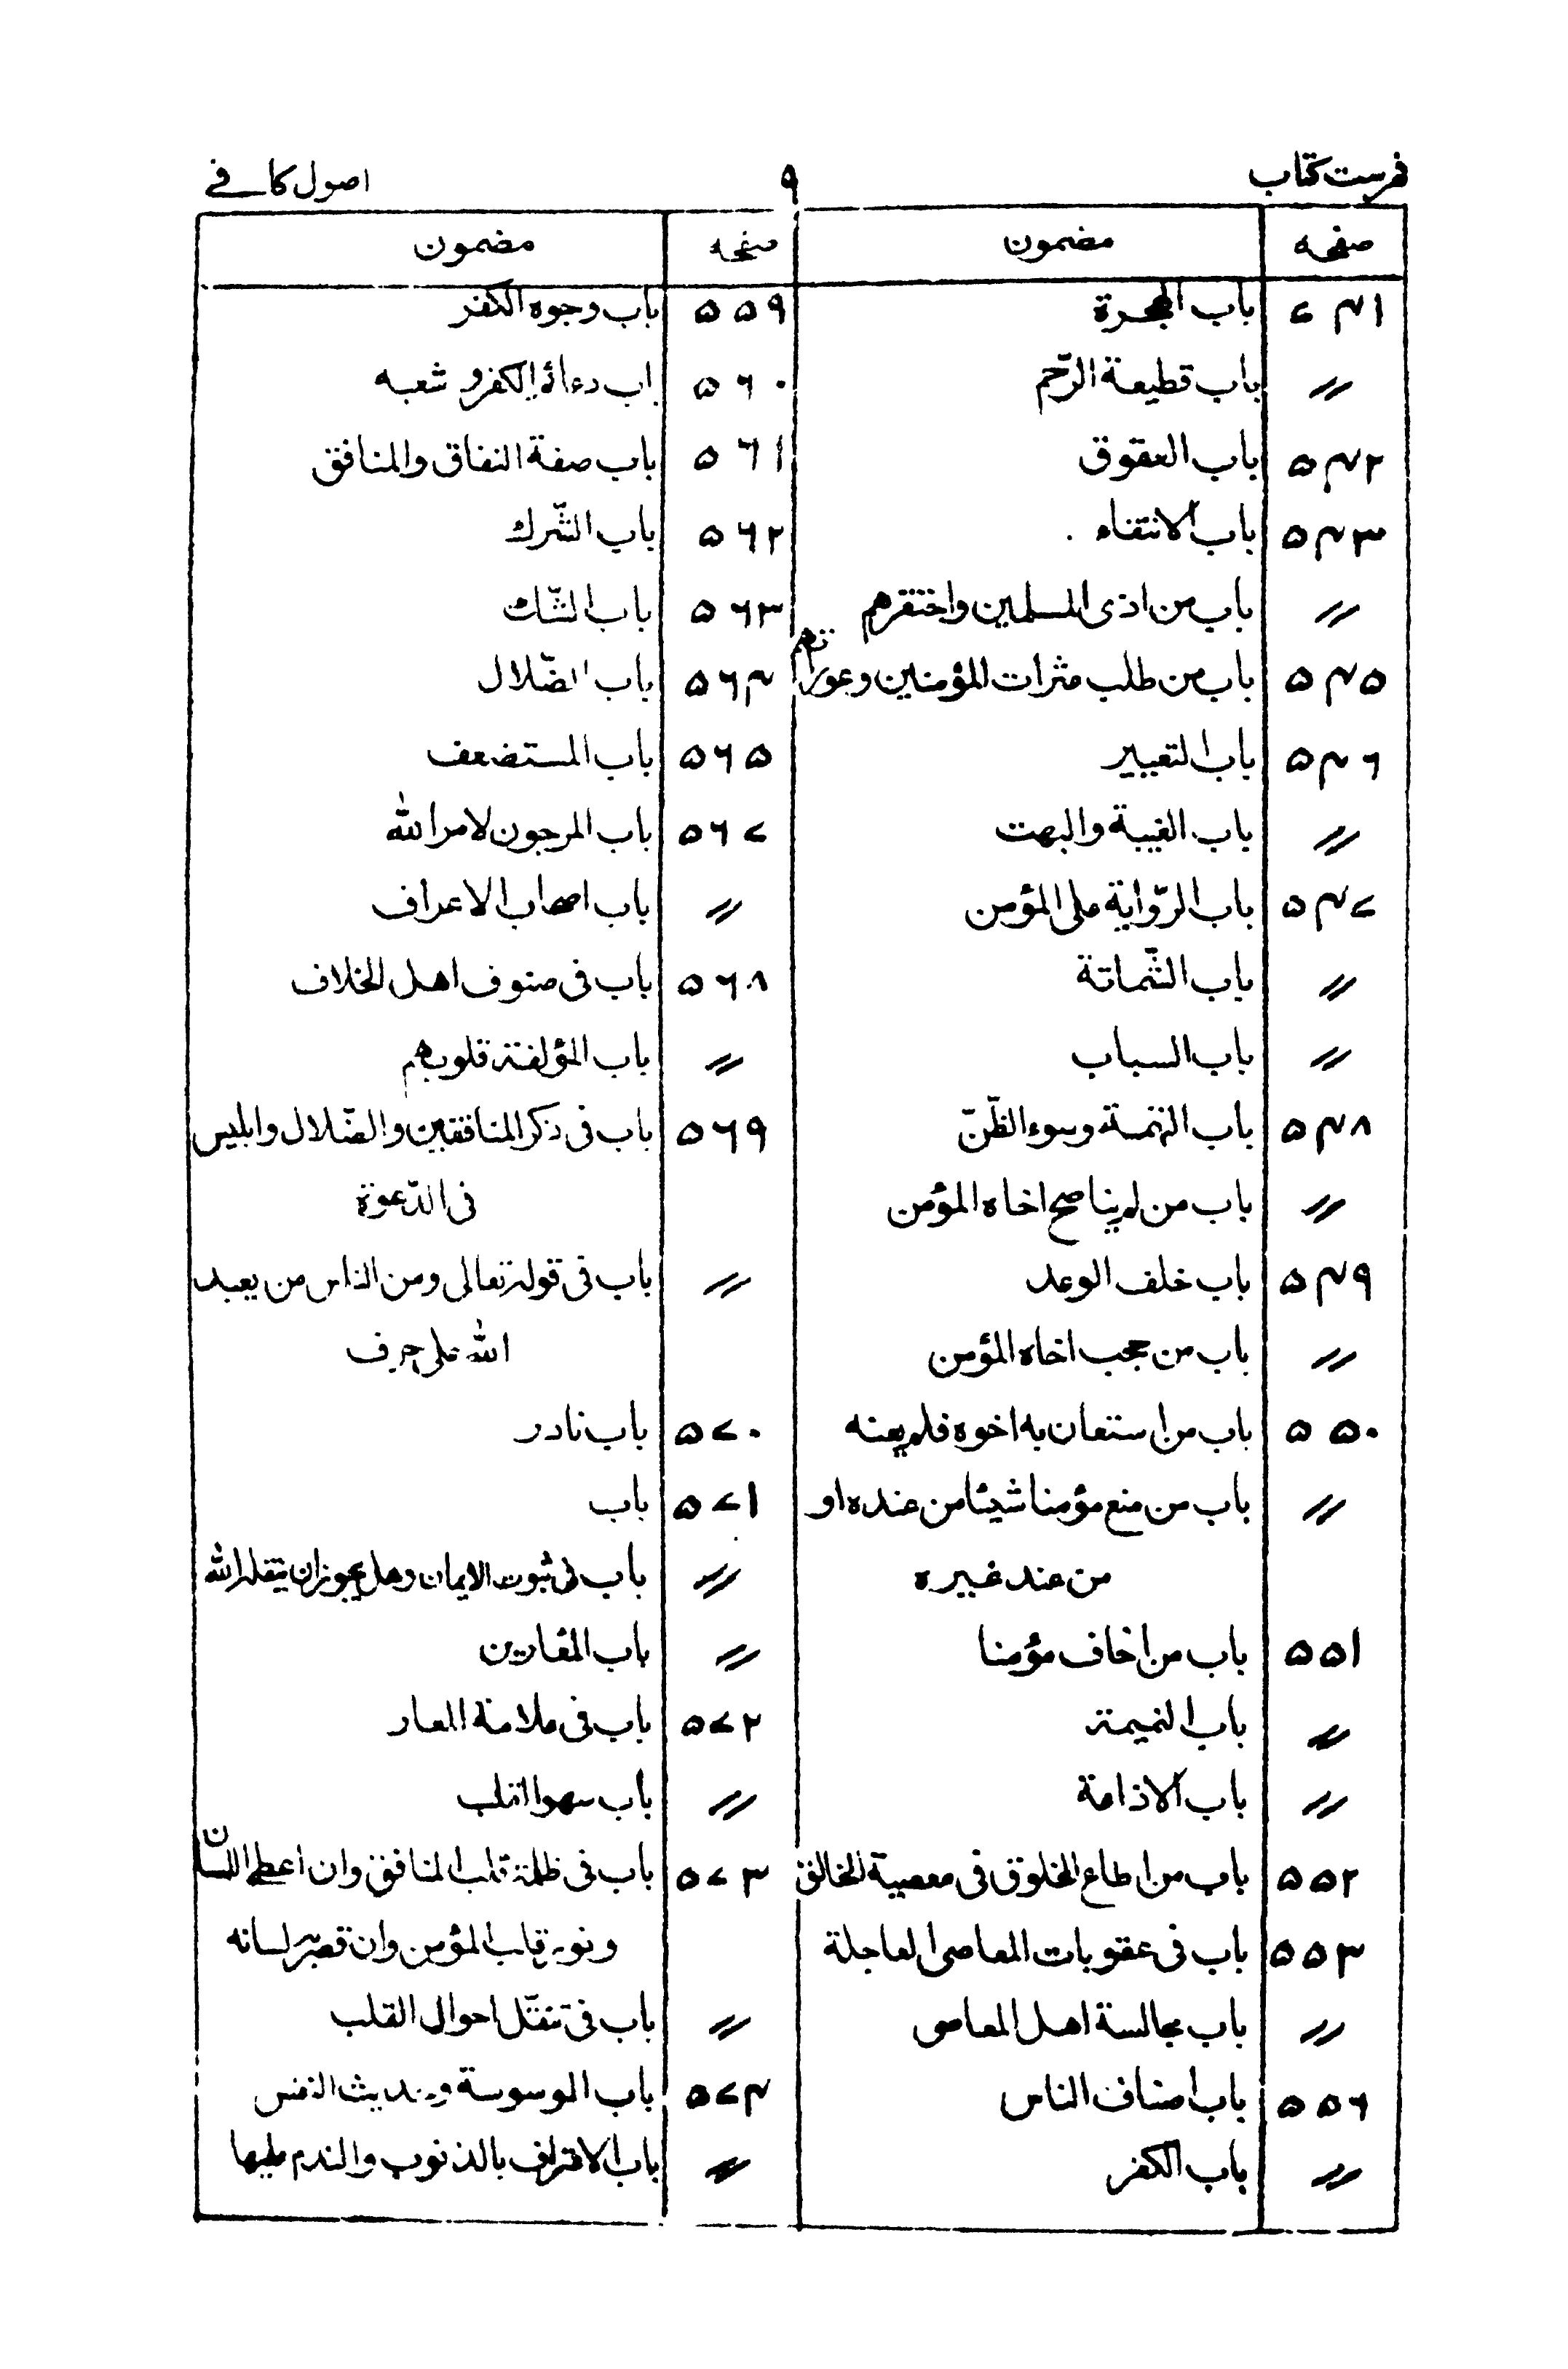 فہرست کتاب ۹ اصول کافے
صفحہ مضمون
۵۴۱ باب الھجرة
〃 باب قطیعة الرّحم
۵۴۲ باب العقوق
۵۴۳ باب الانتفاء
〃 باب من اذی المسلمین واحتقرھم
۵۴۵ باب من طلب عثرات المؤمنین وعوراتھم
۵۴۶ باب التعییر
〃 باب الغیبة والبھت
۵۴۷ باب الرّوایة علی المؤمن
〃 باب الشّماتة
〃 باب السباب
۵۴۸ باب التھمة وسوء الظّنّ
〃 باب من لم یناصح اخاہ المؤمن
۵۴۹ باب خلف الوعد
〃 باب من حجب اخاہ المؤمن
۵۵۰ باب من استعان بہ اخوہ فلم یعنہ
〃 باب من منع مؤمنا شیئا من عندہ او
من عند غیرہ
۵۵۱ باب من اخاف مؤمنا
〃 باب النمیمة
〃 باب الاذاعة
۵۵۲ باب من اطاع المخلوق فی معصیة الخالق
۵۵۳ باب فی عقوبات المعاصی العاجلة
〃 باب مجالسة اھل المعاصی
۵۵۶ باب اصناف الناس
〃 باب الکفر
صفحہ مضمون
۵۵۹ باب وجوہ الکفر
۵۶۰ باب دعائم الکفر و شعبہ
۵۶۱ باب صفة النفاق والمنافق
۵۶۲ باب الشّرك
۵۶۳ باب الشّك
۵۶۴ باب الضّلال
۵۶۵ باب المستضعف
۵۶۷ باب المرجون لامر اللہ
〃 باب اصحاب الاعراف
۵۶۸ باب فی صنوف اھل الخلاف
〃 باب المؤلفة قلوبھم
۵۶۹ باب فی ذکر المنافقین والضّلال وابلیس
فی الدّعوة
〃 باب فی قولہ تعالی ومن الناس من یعبد
اللہ علی حرف
۵۷۰ باب نادر
۵۷۱ باب
〃 باب فی ثبوت الایمان وھل یجوز ان ینقلہ اللہ
〃 باب المعارین
۵۷۲ باب فی علامة المعار
〃 باب سھو القلب
۵۷۳ باب فی ظلمة قلب المنافق وان اعطی اللسان
ونور قلب المؤمن وان قصر بہ لسانہ
〃 باب فی تنقّل احوال القلب
۵۷۴ باب الوسوسة وحدیث النفس
〃 باب الاعتراف بالذنوب والندم علیھا